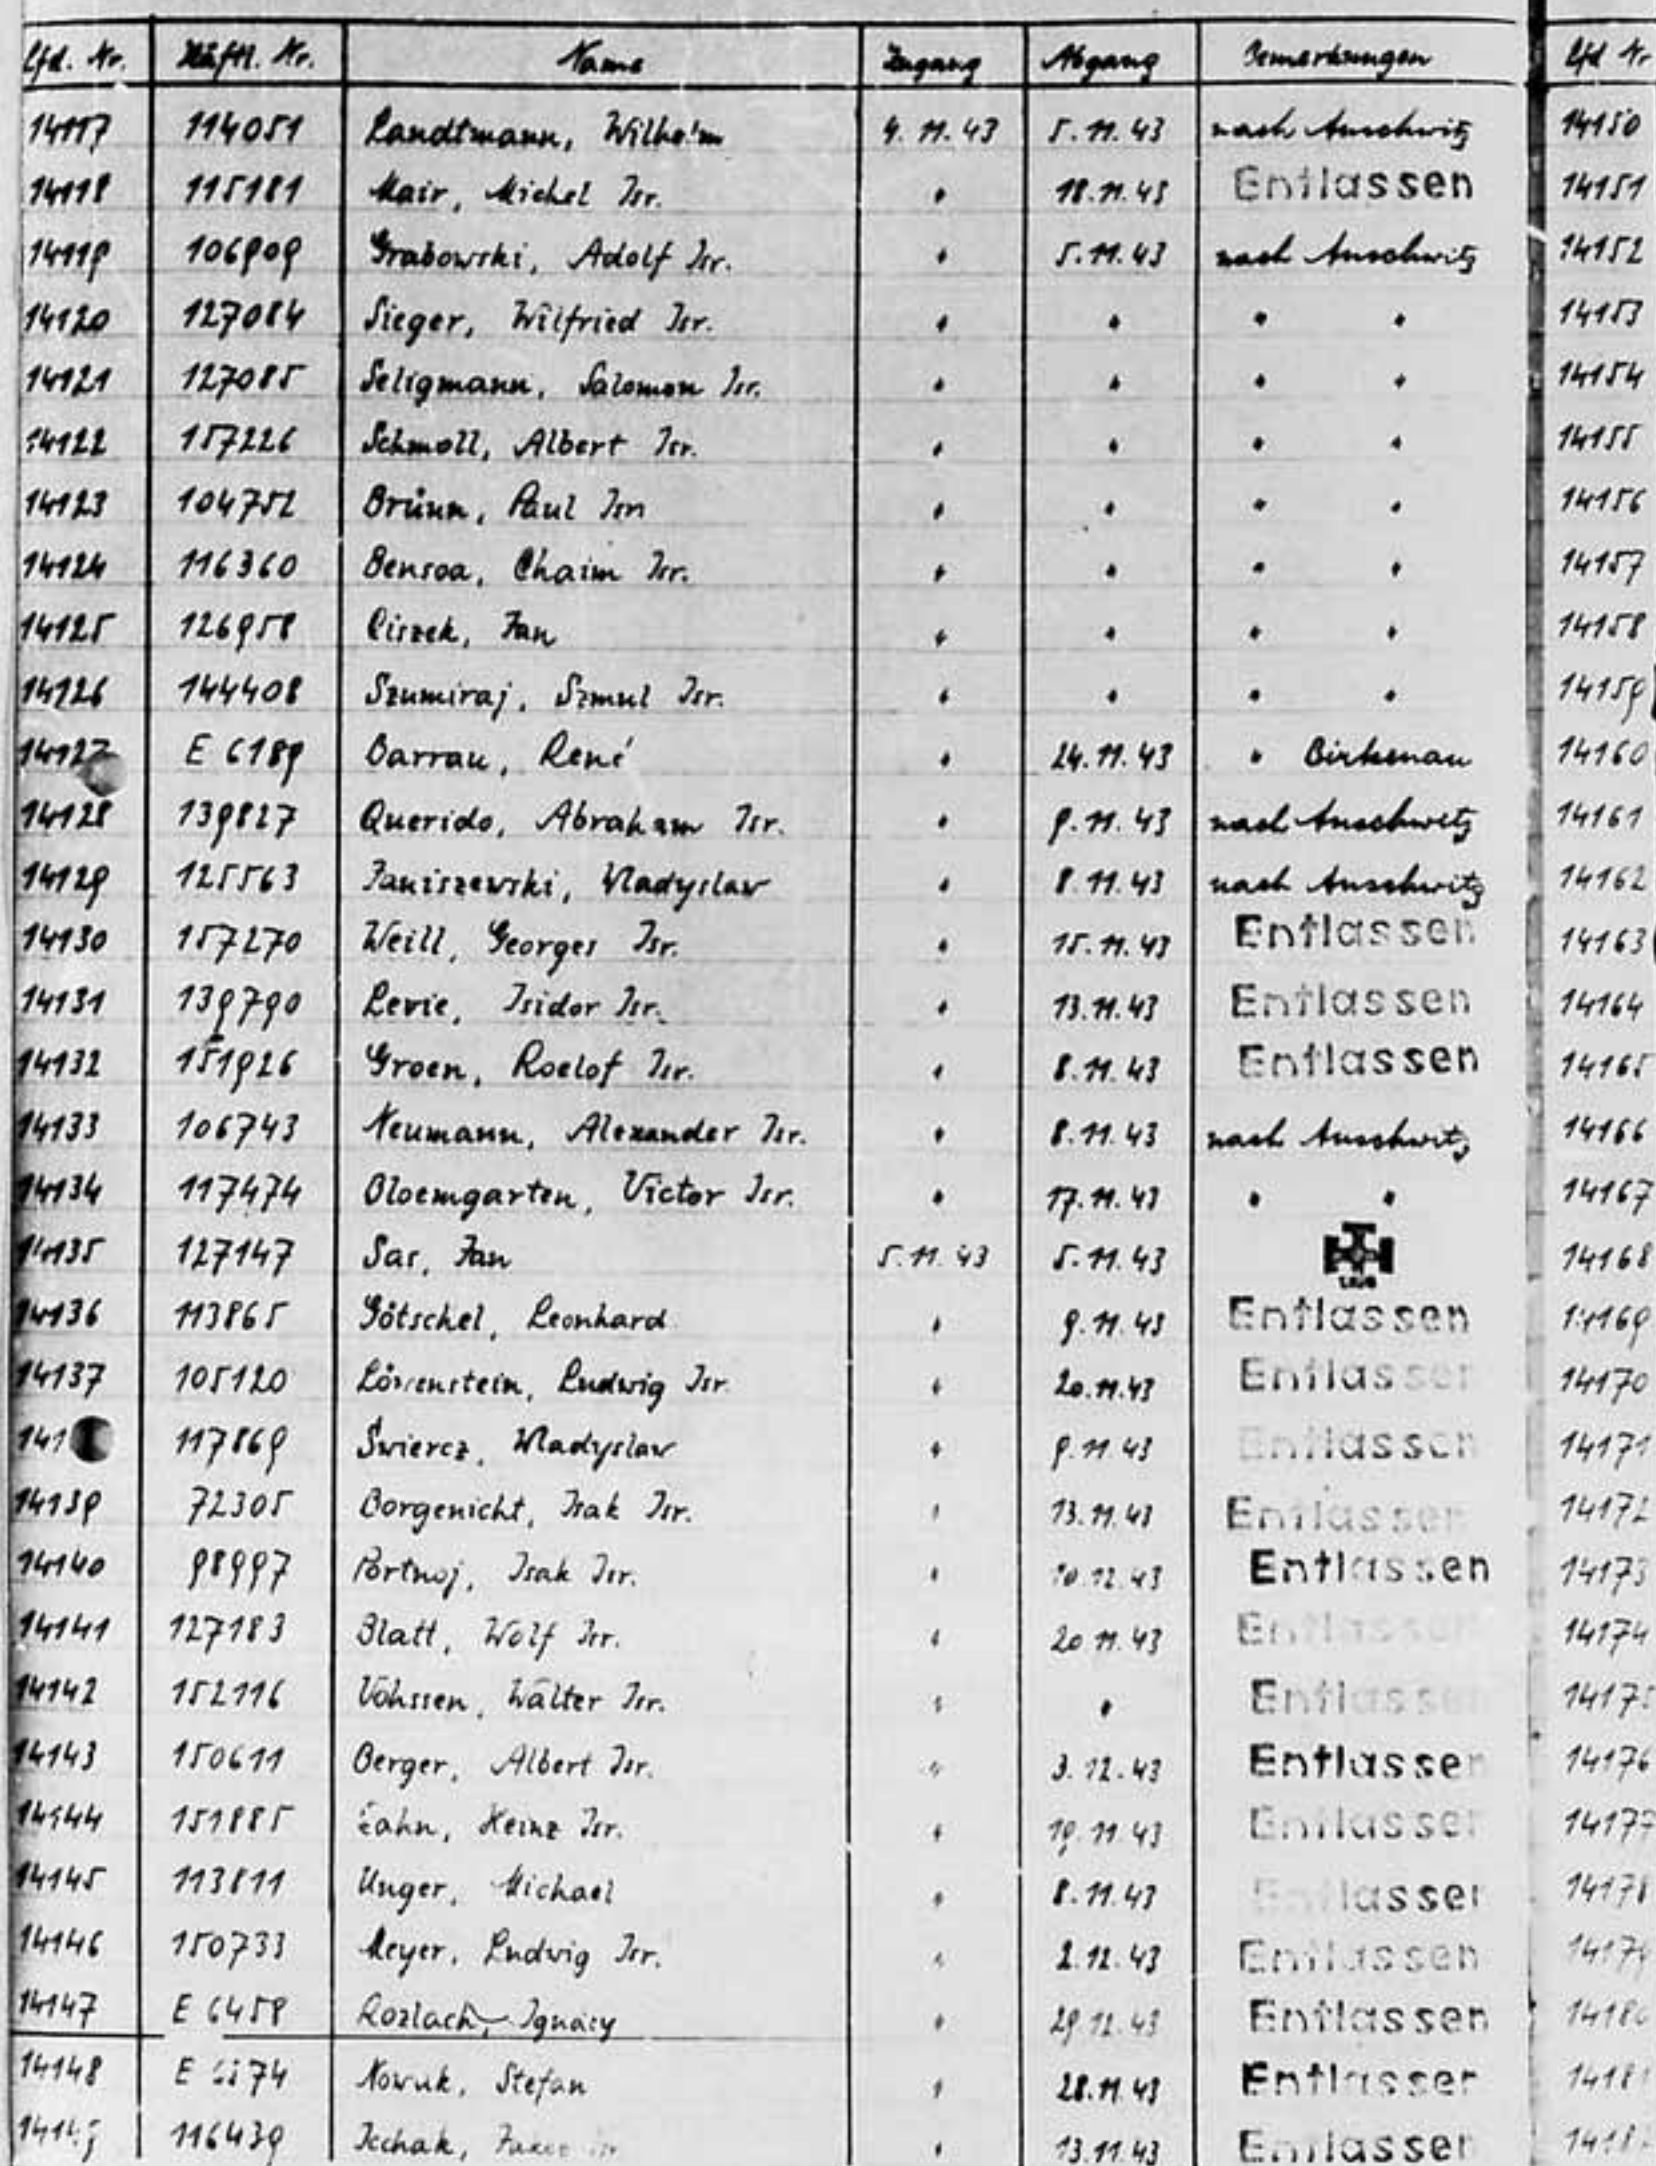 Lfd. Nr. Häftl. Nr. Name Zugang Abgang Bemerkungen Lfd Nr
14117 114051 Landtmann, Wilhelm 4.11.43 5.11.43 nach Auschwitz 14150
14118 115181 Mair, Michel Isr. " 18.11.43 Entlassen 14151
14119 106909 Grabowski, Adolf Isr. " 5.11.43 nach Auschwitz 14152
14120 127084 Sieger, Wilfried Isr. " " " " 14153
14121 127085 Seligmann, Salomon Isr. " " " " 14154
14122 157226 Schmoll, Albert Isr. " " " " 14155
14123 104752 Brünn, Paul Isr. " " " " 14156
14124 116360 Bensoa, Chaim Isr. " " " " 14157
14125 126958 Ciszek, Jan " " " " 14158
14126 144408 Szumiraj, Szmul Isr. " " " " 14159
14127 E 6189 Barrau, René " 24.11.43 " Birkenau 14160
14128 139827 Querido, Abraham Isr. " 9.11.43 nach Auschwitz 14161
14129 125563 Janiszewski, Wladyslaw " 8.11.43 nach Auschwitz 14162
14130 157270 Weill, Georges Isr. " 15.11.43 Entlassen 14163
14131 139790 Levie, Isidor Isr. " 13.11.43 Entlassen 14164
14132 151926 Groen, Roelof Isr. " 8.11.43 Entlassen 14165
14133 106743 Neumann, Alexander Isr. " 8.11.43 nach Auschwitz 14166
14134 117474 Bloemgarten, Victor Isr. " 17.11.43 " " 14167
14135 127147 Sas, Jan 5.11.43 5.11.43 14168
14136 113865 Götschel, Leonhard " 9.11.43 Entlassen 14169
14137 105120 Löwenstein, Ludwig Isr. " 20.11.43 Entlassen 14170
141 117869 Świercz, Wladyslaw " 9.11.43 Entlassen 14171
14139 72305 Borgenicht, Isak Isr. " 13.11.43 Entlassen 14172
14140 98997 Portnoj, Isak Isr. " 10.12.43 Entlassen 14173
14141 127183 Blatt, Wolf Isr. " 20.11.43 Entlassen 14174
14142 152116 Vohssen, Walter Isr. " " Entlassen 1417
14143 150611 Berger, Albert Isr. " 3.12.43 Entlassen 14176
14144 151885 Heinz Isr. " 19.11.43 Entlassen 14177
14145 113811 Unger, Michael " 8.11.43 Entlassen 14178
14146 150733 Meyer, Ludwig Isr. " 2.12.43 Entlassen 14179
14147 E 6458 Rozlach, Ignacy " 29.12.43 Entlassen
14148 Nowak, Stefan " 28.11.43 Entlassen
116439 " 13.11.43 Entlassen